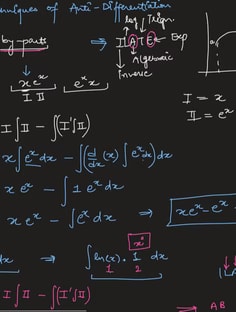 niques of Anti-Differentiation
by-parts ⇒ I L A T E → Exp
log Trigno.
Algebraic
Inverse
x eˣ eˣ x
I II
I = x
II = eˣ
I ∫II - ∫(I'∫II)
x ∫eˣ dx - ∫(d/dx (x) ∫eˣ dx) dx
x eˣ - ∫ 1 eˣ dx
x eˣ - ∫ eˣ dx ⇒ xeˣ - eˣ
x⁰
dx ⇒ ∫ ln(x) . 1 dx
1 2
I ∫II - ∫(I'∫II) → AB